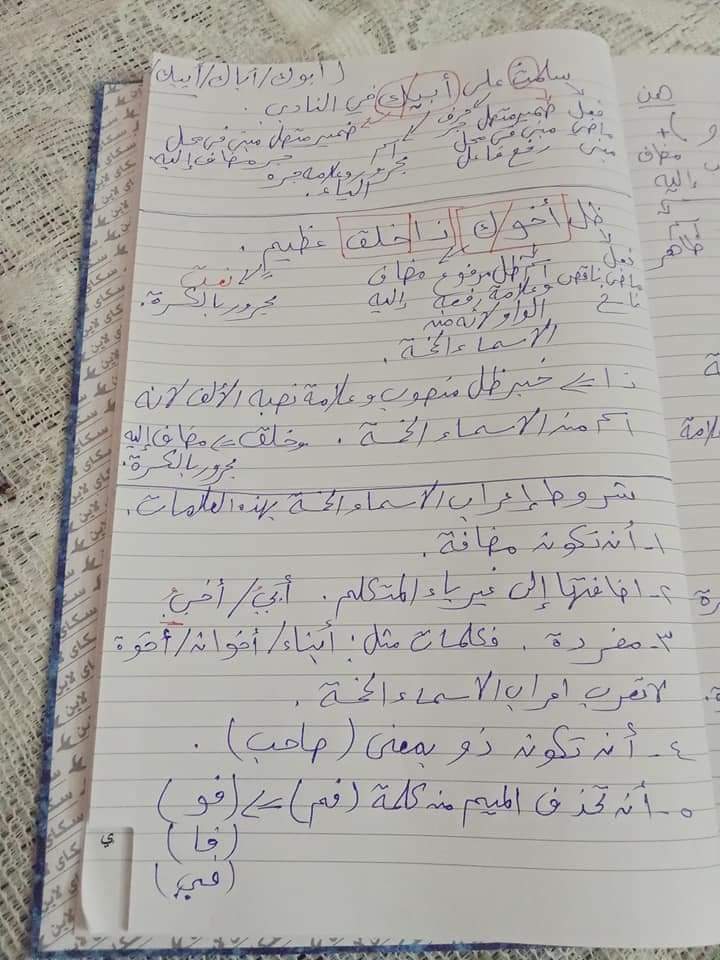 (أبوك/أباك/أبيك)
سلمت على أبيك في النادي.
فعل ضمير متصل حرف جر ضمير متصل مبني في محل
ماضي مبني في محل اسم جر مضاف إليه.
مبني رفع فاعل مجرور وعلامة جره
الياء.
ظل أخوك ذا خلق عظيم.
فعل اسم ظل مرفوع مضاف نعت
ماضي ناقص وعلامة رفعه إليه مجرور بالكسرة.
ناسخ الواو لأنه من
الاسماء الخمسة.
ذا خبر ظل منصوب وعلامة نصبه الألف لانه
اسم من الاسماء الخمسة. وخلق مضاف إليه
مجرور بالكسرة.
شروط إعراب الاسماء الخمسة بهذه العلامات.
١- أن تكون مضافة.
٢- اضافتها إلى غير ياء المتكلم. أبي/أخي
٣- مفردة. فكلمات مثل: أبناء/أخوان/أخوة
لا تعرب اعراب الاسماء الخمسة.
٤- أن تكون ذو بمعنى (صاحب).
٥- أن تحذف الميم من كلمة (فم) (فو)
(فا)
(في)
هن
مضاف
إليه
ظاهر
ي